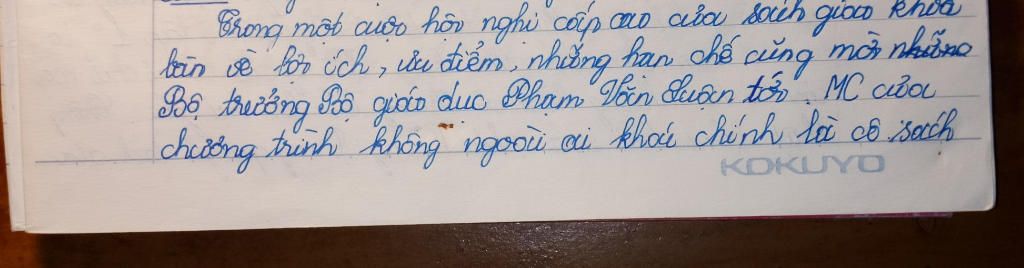 Trong một cuộc hội nghị cấp cao của sách giáo khoa
bàn về lợi ích, ưu điểm, những hạn chế cũng mời những
Bộ trưởng Bộ giáo dục Phạm Văn Xuân tới. MC của
chương trình không ngoài ai khác chính là cô sách
KOKUYO